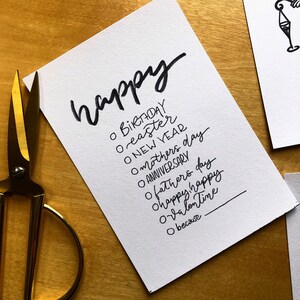 happy
BIRTHDAY
easter
NEW YEAR
mothers day
ANNIVERSARY
fathers day
happy happy
valentine
because ______